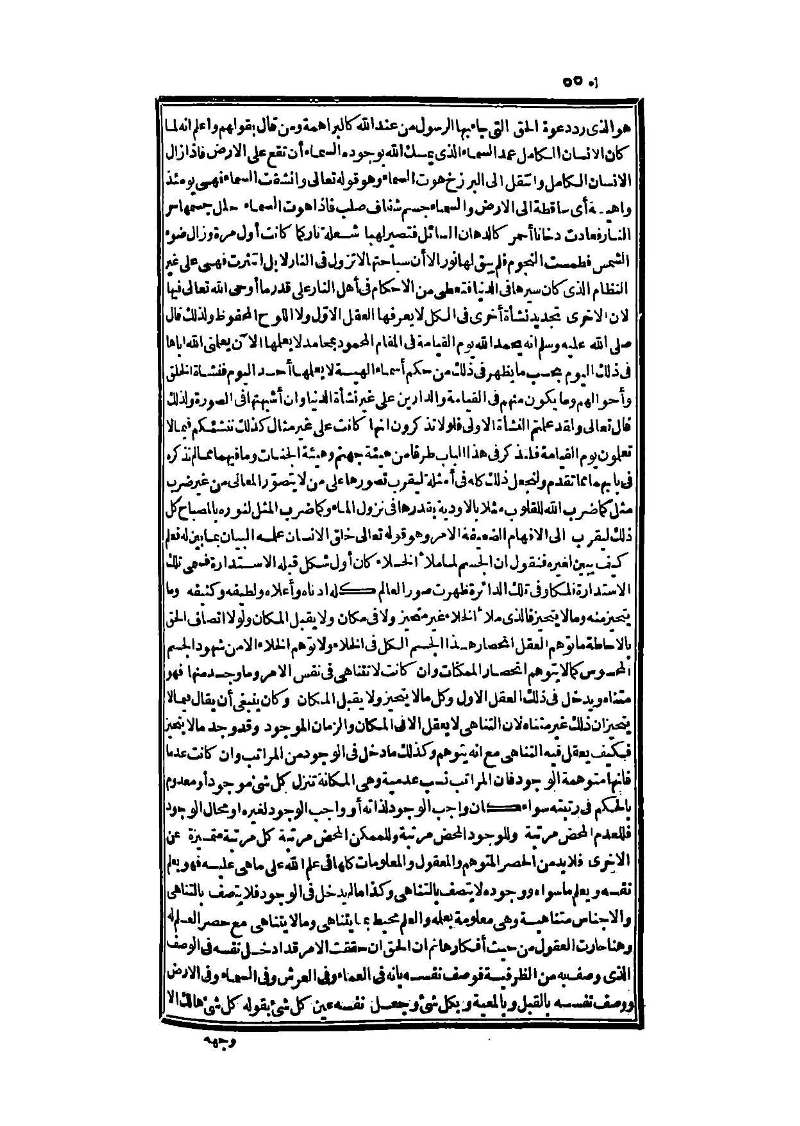 ٥٥٠١
هو الذى رد دعوة الحق التى جاء بها الرسول من عند الله كالبراهمة ومن قال بقولهم واعلم انه لما
كان الانسان الكامل عمد السماء الذى يمسك الله بوجوده السماء أن تقع على الارض فاذا زال
الانسان الكامل وانتقل الى البرزخ هوت السماء وهو قوله تعالى وانشقت السماء فهى يومئذ
واهية أى ساقطة الى الارض والسماء جسم شفاف صلب فاذا هوت السماء حلل جسمها حر
النار فعادت دخانا أحمر كالدهان السائل فتصير لهبا شعلة نار كما كانت أول مرة وزال ضوء
الشمس فطمست النجوم فلم يبق لها نور الا أن سباحتها لا تزول فى النار لا بل انتثرت فهى على غير
النظام الذى كان سيرها فى الدنيا فتعطى من الاحكام فى أهل النار على قدر ما أوحى الله تعالى فيها
لان الاخرى تجديد نشأة أخرى فى الكل لا يعرفها العقل الاول ولا اللوح المحفوظ ولذلك قال
صلى الله عليه وسلم انه يحمد الله يوم القيامة فى المقام المحمود بمحامد لا يعلمها الآن يعلمنى الله اياها
فى ذلك اليوم بحسب ما يظهر فى ذلك من حكم أسماء الهية لا يعلمها أحد اليوم فنشأة الخلق
وأحوالهم وما يكون منهم فى القيامة والدارين على غير نشأة الدنيا وان أشبهتها فى الصورة ولذلك
قال تعالى ولقد علمتم النشأة الاولى فلولا تذكرون انها كانت على غير مثال كذلك ننشئكم فيما لا
تعلمون يوم القيامة فلنذكر فى هذا الباب طرفا من هيئة جهنم وهيئة الجنات وما فيهما مما لم نذكره
فى بابهما مما تقدم ولنجعل ذلك كله فى أمثلة ليقرب تصورها على من لا يتصور المعانى من غير ضرب
مثل كما ضرب الله للقلوب مثلا بالاودية بقدرها فى نزول الماء وكما ضرب المثل لنوره بالمصباح كل
ذلك ليقرب الى الافهام الضعيفة الامر وهو قوله تعالى خلق الانسان علمه البيان بما بين له فعلم
كيف يبين لغيره فنقول ان الجسم لما ملأ الخلاء كان أول شكل قبله الاستدارة فسمى تلك
الاستدارة فلكا وفى تلك الدائرة ظهرت صور العالم كله ادناه وأعلاه ولطيفه وكثيفه وما
يتحيز منه وما لا يتحيز فالذى ملأ الخلاء غير متحيز ولا فى مكان ولا يقبل المكان ولولا اتصاف الحق
بالاحاطة ما توهم العقل انحصار هذا الجسم الكل فى الخلاء ولا توهم الخلاء الا من شهود الجسم
المحسوس كما لا يتوهم انحصار الممكنات وان كانت لا تتناهى فى نفس الامر وما وجد منها فهو
متناه ويدخل فى ذلك العقل الاول وكل ما لا يتحيز ولا يقبل المكان وكان ينبغى أن يقال فيما لا
يتحيز ان ذلك غير متناه لان التناهى لا يعقل الا فى المكان والزمان الموجود وقد وجد ما لا يتحيز
فكيف يعقل فيه التناهى مع انه يتوهم وكذلك ما دخل فى الوجود من المراتب وان كانت عدما
فانها متوهمة الوجود فان المراتب نسب عدمية وهى المكانة تنزل كل شئ موجود أو معدوم
بالحكم فى رتبته سواء كان واجب الوجود لذاته أو واجب الوجود لغيره او محال الوجود
فللعدم المحض مرتبة وللوجود المحض مرتبة وللممكن المحض مرتبة كل مرتبة متميزة عن
الاخرى فلا بد من الحصر المتوهم والمعقول والمعلومات كلها فى علم الله على ما هى عليه فهو يعلم
نفسه ويعلم ما سواه ووجوده لا يتصف بالتناهى وكذا ما لم يدخل فى الوجود فلا يتصف بالتناهى
والاجناس متناهية وهى معلومة بعلمه والعلم محيط بما يتناهى وما لا يتناهى مع حصر العلم له
وهنا حارت العقول من حيث أفكارها ثم ان الحق ان حققت الامر قد ادخل نفسه فى الوصف
الذى وصف به من الظرفية فوصف نفسه بانه فى العماء وفى العرش وفى السماء وفى الارض
ووصف نفسه بالقبل وبالمعية وبكل شئ وجعل نفسه عين كل شئ بقوله كل شئ هالك الا
وجهه